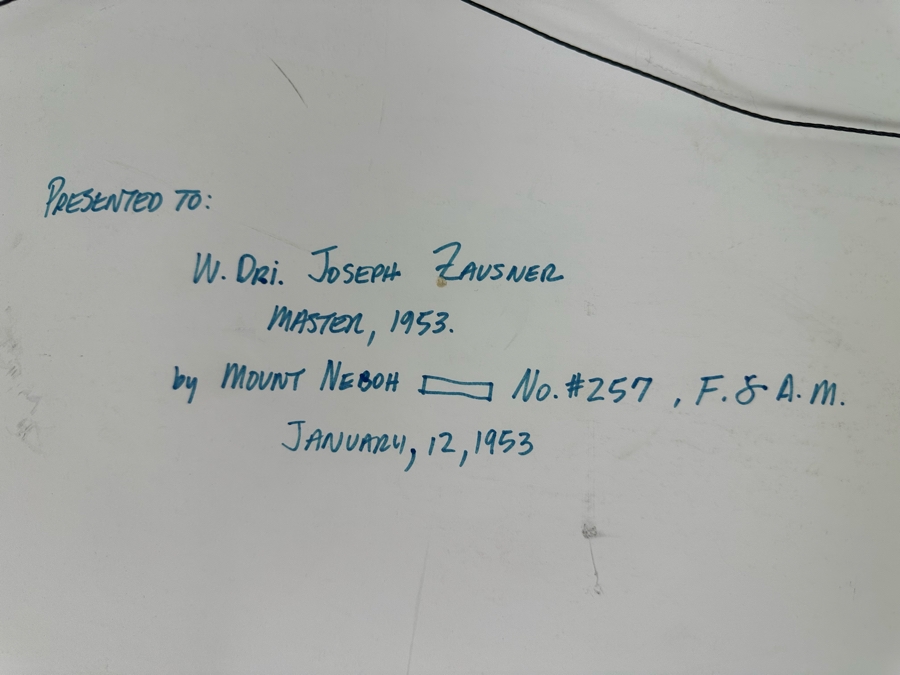 PRESENTED TO:
W. DRI. JOSEPH ZAUSNER
MASTER, 1953.
by MOUNT NEBOH No. #257, F. & A. M.
JANUARY, 12, 1953